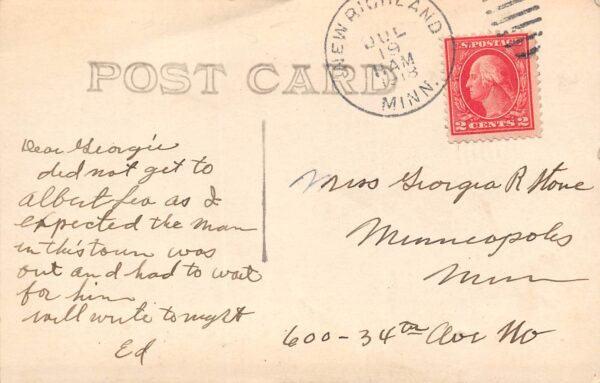 POST CARD
NEW RICHLAND
JUL
19
AM
1918
MINN.
U.S. POSTAGE
2 CENTS 2
Dear Georgie
did not get to
Albert Lea as I
expected the man
in this town was
out and had to wait
for him
will write tonight
Ed
Miss Georgia R Stone
Minneapolis
Minn
600-34th Ave No